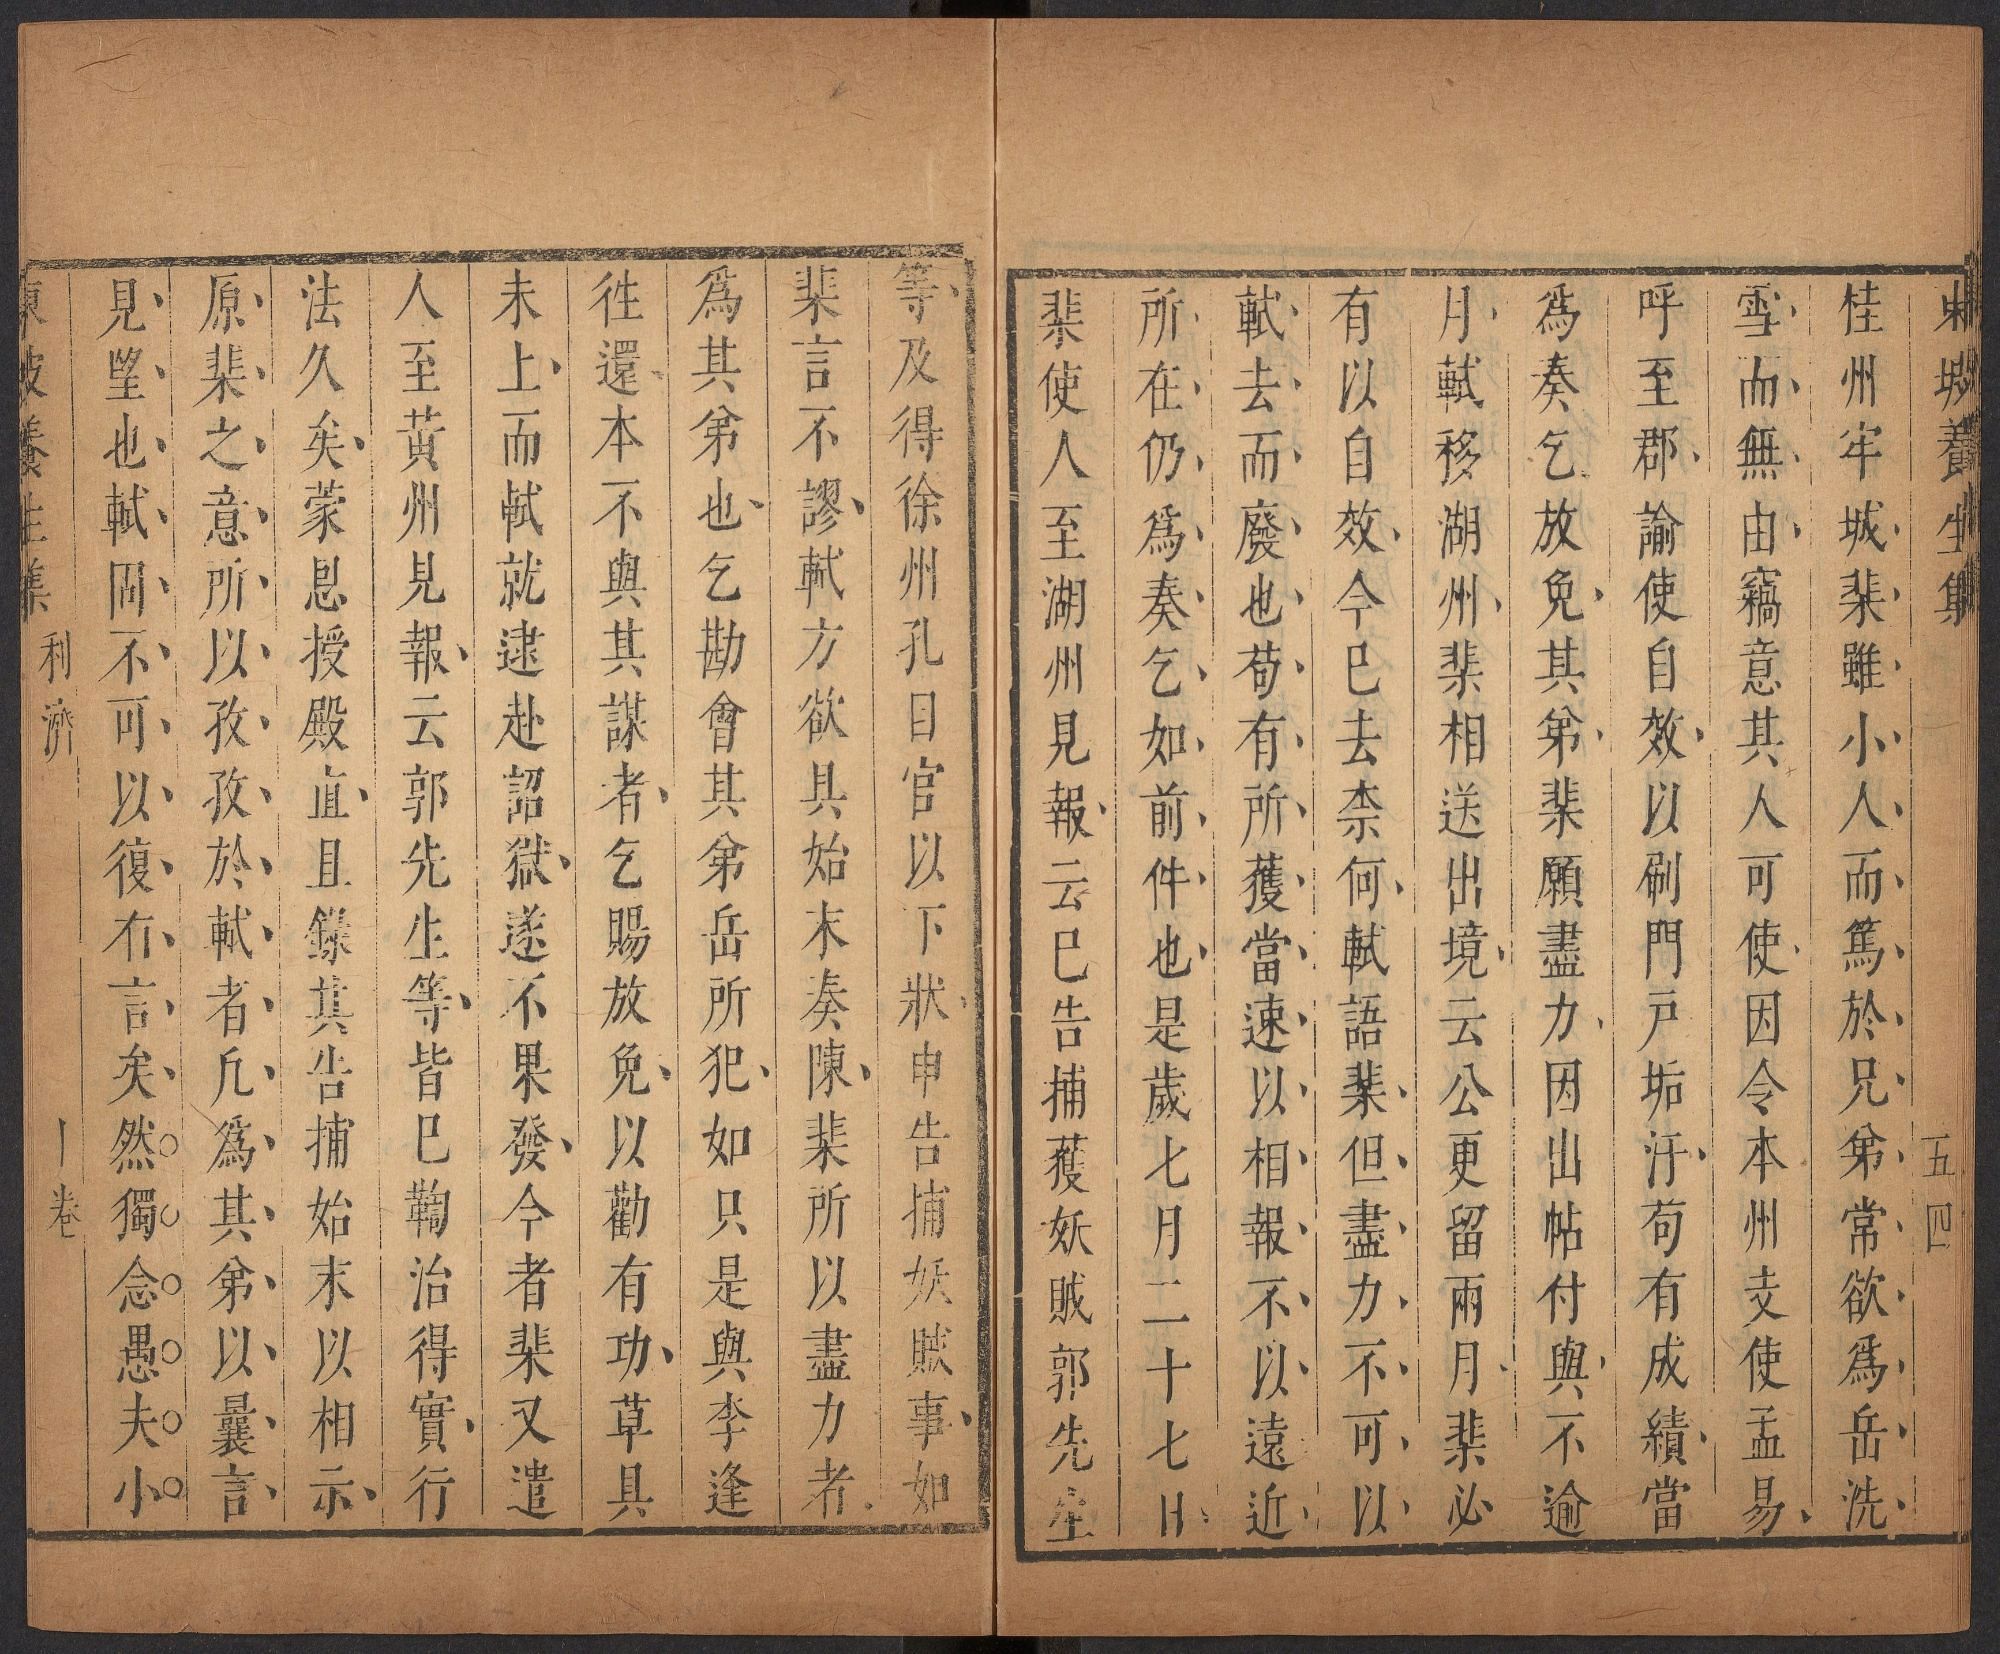 東坡養生集
五四
桂州牢城棐雖小人而篤於兄弟常欲爲岳洗
雪而無由竊意其人可使因令本州支使孟易
呼至郡諭使自效以刷門戶垢汙苟有成績當
爲奏乞放免其弟棐願盡力因出帖付與不逾
月軾移湖州棐相送出境云公更留兩月棐必
有以自效今巳去柰何軾語棐但盡力不可以
軾去而廢也苟有所獲當速以相報不以遠近
所在仍爲奏乞如前件也是歲七月二十七日
棐使人至湖州見報云巳告捕獲妖賊郭先生
等及得徐州孔目官以下狀申告捕妖賊事如
棐言不謬軾方欲具始末奏陳棐所以盡力者
爲其弟也乞勘會其弟岳所犯如只是與李逢
徃還本不與其謀者乞賜放免以勸有功草具
未上而軾就逮赴詔獄遂不果發今者棐又遣
人至黃州見報云郭先生等皆巳鞫治得實行
法久矣蒙恩授殿直且錄其告捕始末以相示
原棐之意所以孜孜於軾者凡爲其弟以曩言
見望也軾固不可以復有言矣然獨念愚夫小
東坡養生集
利濟
卷